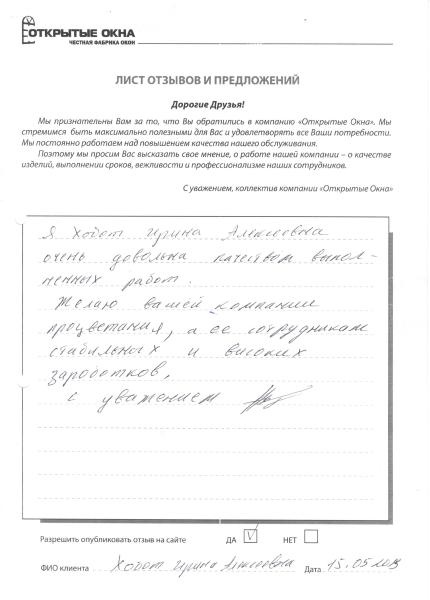 ОТКРЫТЫЕ ОКНА
ЧЕСТНАЯ ФАБРИКА ОКОН
ЛИСТ ОТЗЫВОВ И ПРЕДЛОЖЕНИЙ
Дорогие Друзья!
Мы признательны Вам за то, что Вы обратились в компанию «Открытые Окна». Мы
стремимся быть максимально полезными для Вас и удовлетворять все Ваши потребности.
Мы постоянно работаем над повышением качества нашего обслуживания.
Поэтому мы просим Вас высказать свое мнение, о работе нашей компании – о качестве
изделий, выполнении сроков, вежливости и профессионализме наших сотрудников.
С уважением, коллектив компании «Открытые Окна»
Я Хобот Ирина Алексеевна
очень довольна качеством выпол-
ненных работ.
Желаю вашей компании
процветания, а ее сотрудникам
стабильных и високих
заработков,
с уважением
Разрешить опубликовать отзыв на сайте ДА V НЕТ
ФИО клиента Хобот Ирина Алексеевна Дата 15.05.2013